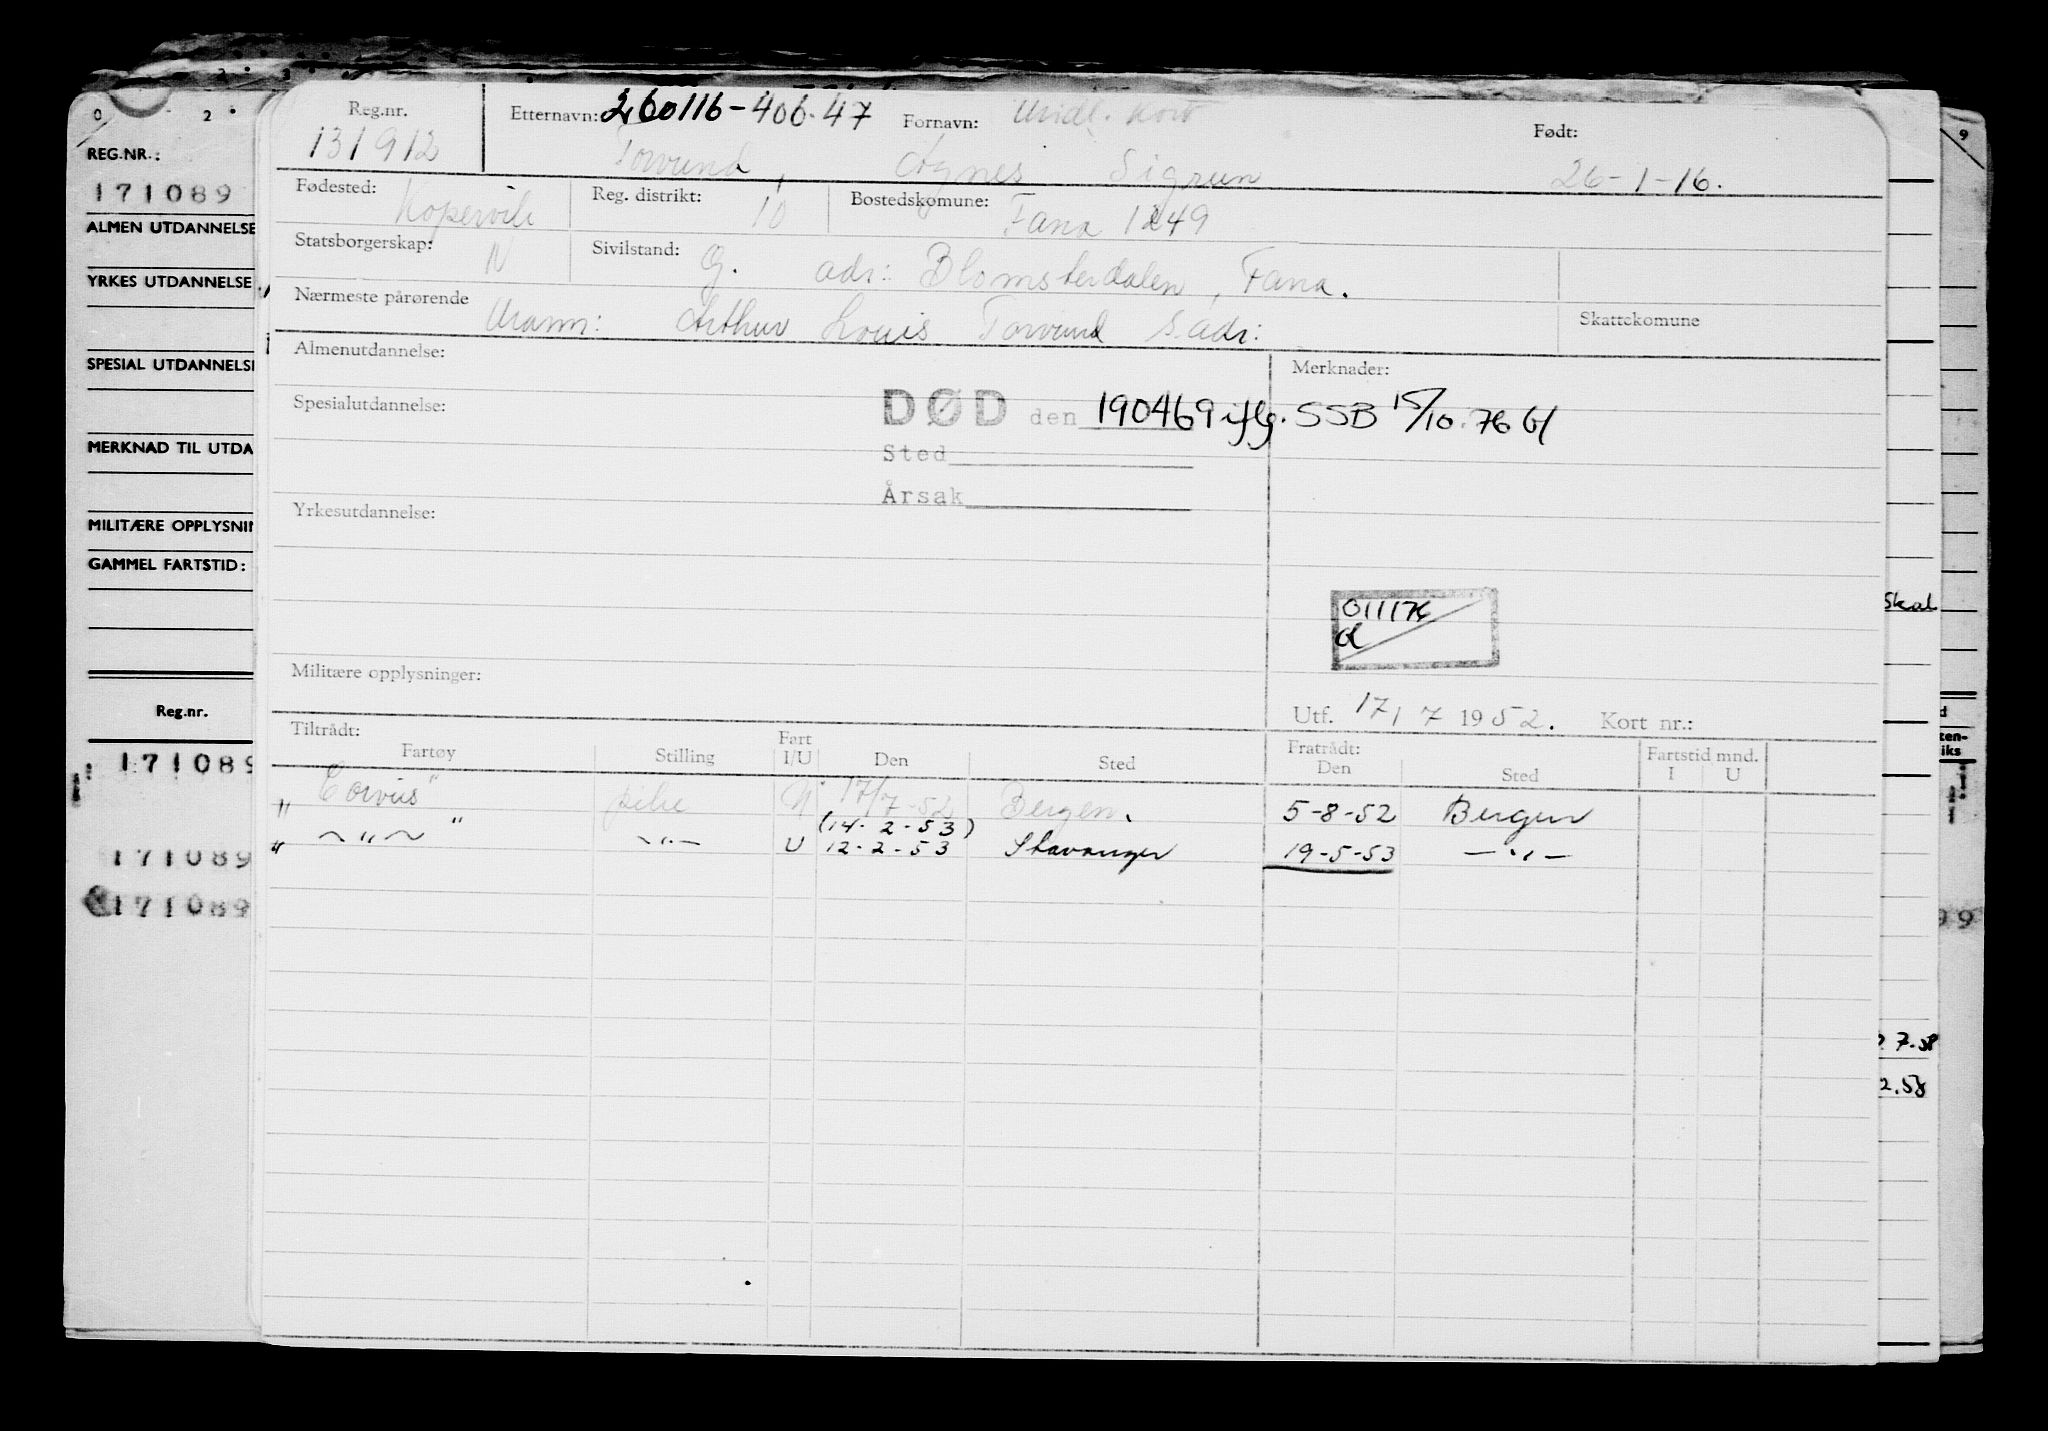 0 2 9
REG.NR.:
171089
ALMEN UTDANNELSE
YRKES UTDANNELSE
SPESIAL UTDANNELSE
MERKNAD TIL UTDA
MILITÆRE OPPLYSNIN
GAMMEL FARTSTID:
Reg.nr.
171089
171089
171089
Reg.nr. Etternavn: 260116-406.47 Fornavn: Midl. kort Født:
131912 Torvund, Agnes Sigrun 26-1-16.
Fødested: Kopervik Reg. distrikt: 10 Bostedskomune: Fana 1249
Statsborgerskap: N Sivilstand: G. adr: Blomsterdalen, Fana.
Nærmeste pårørende Mann: Arthur Louis Torvund s.adr: Skattekomune
Almenutdannelse: Merknader:
Spesialutdannelse: DØD den 190469 iflg. SSB 15/10.76
Sted
Årsak
Yrkesutdannelse:
011176
Militære opplysninger:
Utf. 17/7 1952. Kort nr.:
Tiltrådt: Fratrådt: Fartstid mnd.
Fartøy Stilling Fart I/U Den Sted Den Sted I U
"Corvus" pike 17/7-52 Bergen. 5-8-52 Bergen
(14-2-53)
" ~"~ " -"- U 12-2-53 Stavanger 19-5-53 -"-
Skal
7.58
2.58
99